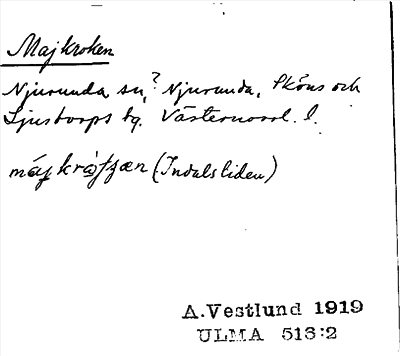 Majkroken
Njurunda sn,? Njurunda, Sköns och
Ljustorps tg. Västernorrl. l.
(Indalsliden)
A.Vestlund 1919
ULMA 513:2